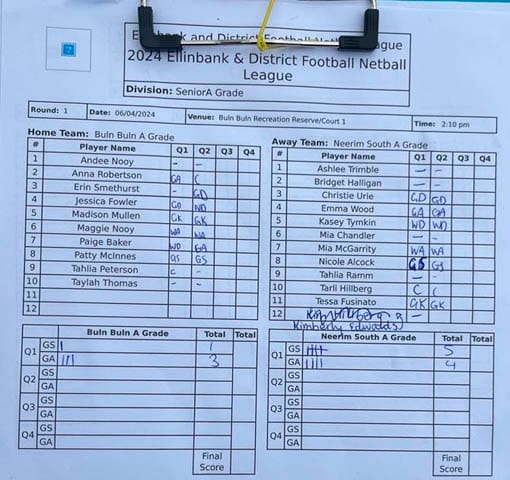 Ellinbank and District Football Netball League
2024 Ellinbank & District Football Netball
League
Division: SeniorA Grade
Round: 1 Date: 06/04/2024 Venue: Buln Buln Recreation Reserve/Court 1 Time: 2:10 pm
Home Team: Buln Buln A Grade
# Player Name Q1 Q2 Q3 Q4
1 Andee Nooy - -
2 Anna Robertson GA C
3 Erin Smethurst - GD
4 Jessica Fowler GD WD
5 Madison Mullen GK GK
6 Maggie Nooy WA WA
7 Paige Baker WD GA
8 Patty McInnes GS GS
9 Tahlia Peterson C -
10 Taylah Thomas - -
11
12
Away Team: Neerim South A Grade
# Player Name Q1 Q2 Q3 Q4
1 Ashlee Trimble - -
2 Bridget Halligan - -
3 Christie Urie GD GD
4 Emma Wood GA GA
5 Kasey Tymkin WD WD
6 Mia Chandler - -
7 Mia McGarrity WA WA
8 Nicole Alcock GS GS
9 Tahlia Ramm - -
10 Tarli Hillberg C C
11 Tessa Fusinato GK GK
12 -
Kimberly Edwards
Buln Buln A Grade Total Total
Q1 GS | 1
GA ||| 3
Q2 GS
GA
Q3 GS
GA
Q4 GS
GA
Final
Score
Neerim South A Grade Total Total
Q1 GS 5
GA |||| 4
Q2 GS
GA
Q3 GS
GA
Q4 GS
GA
Final
Score